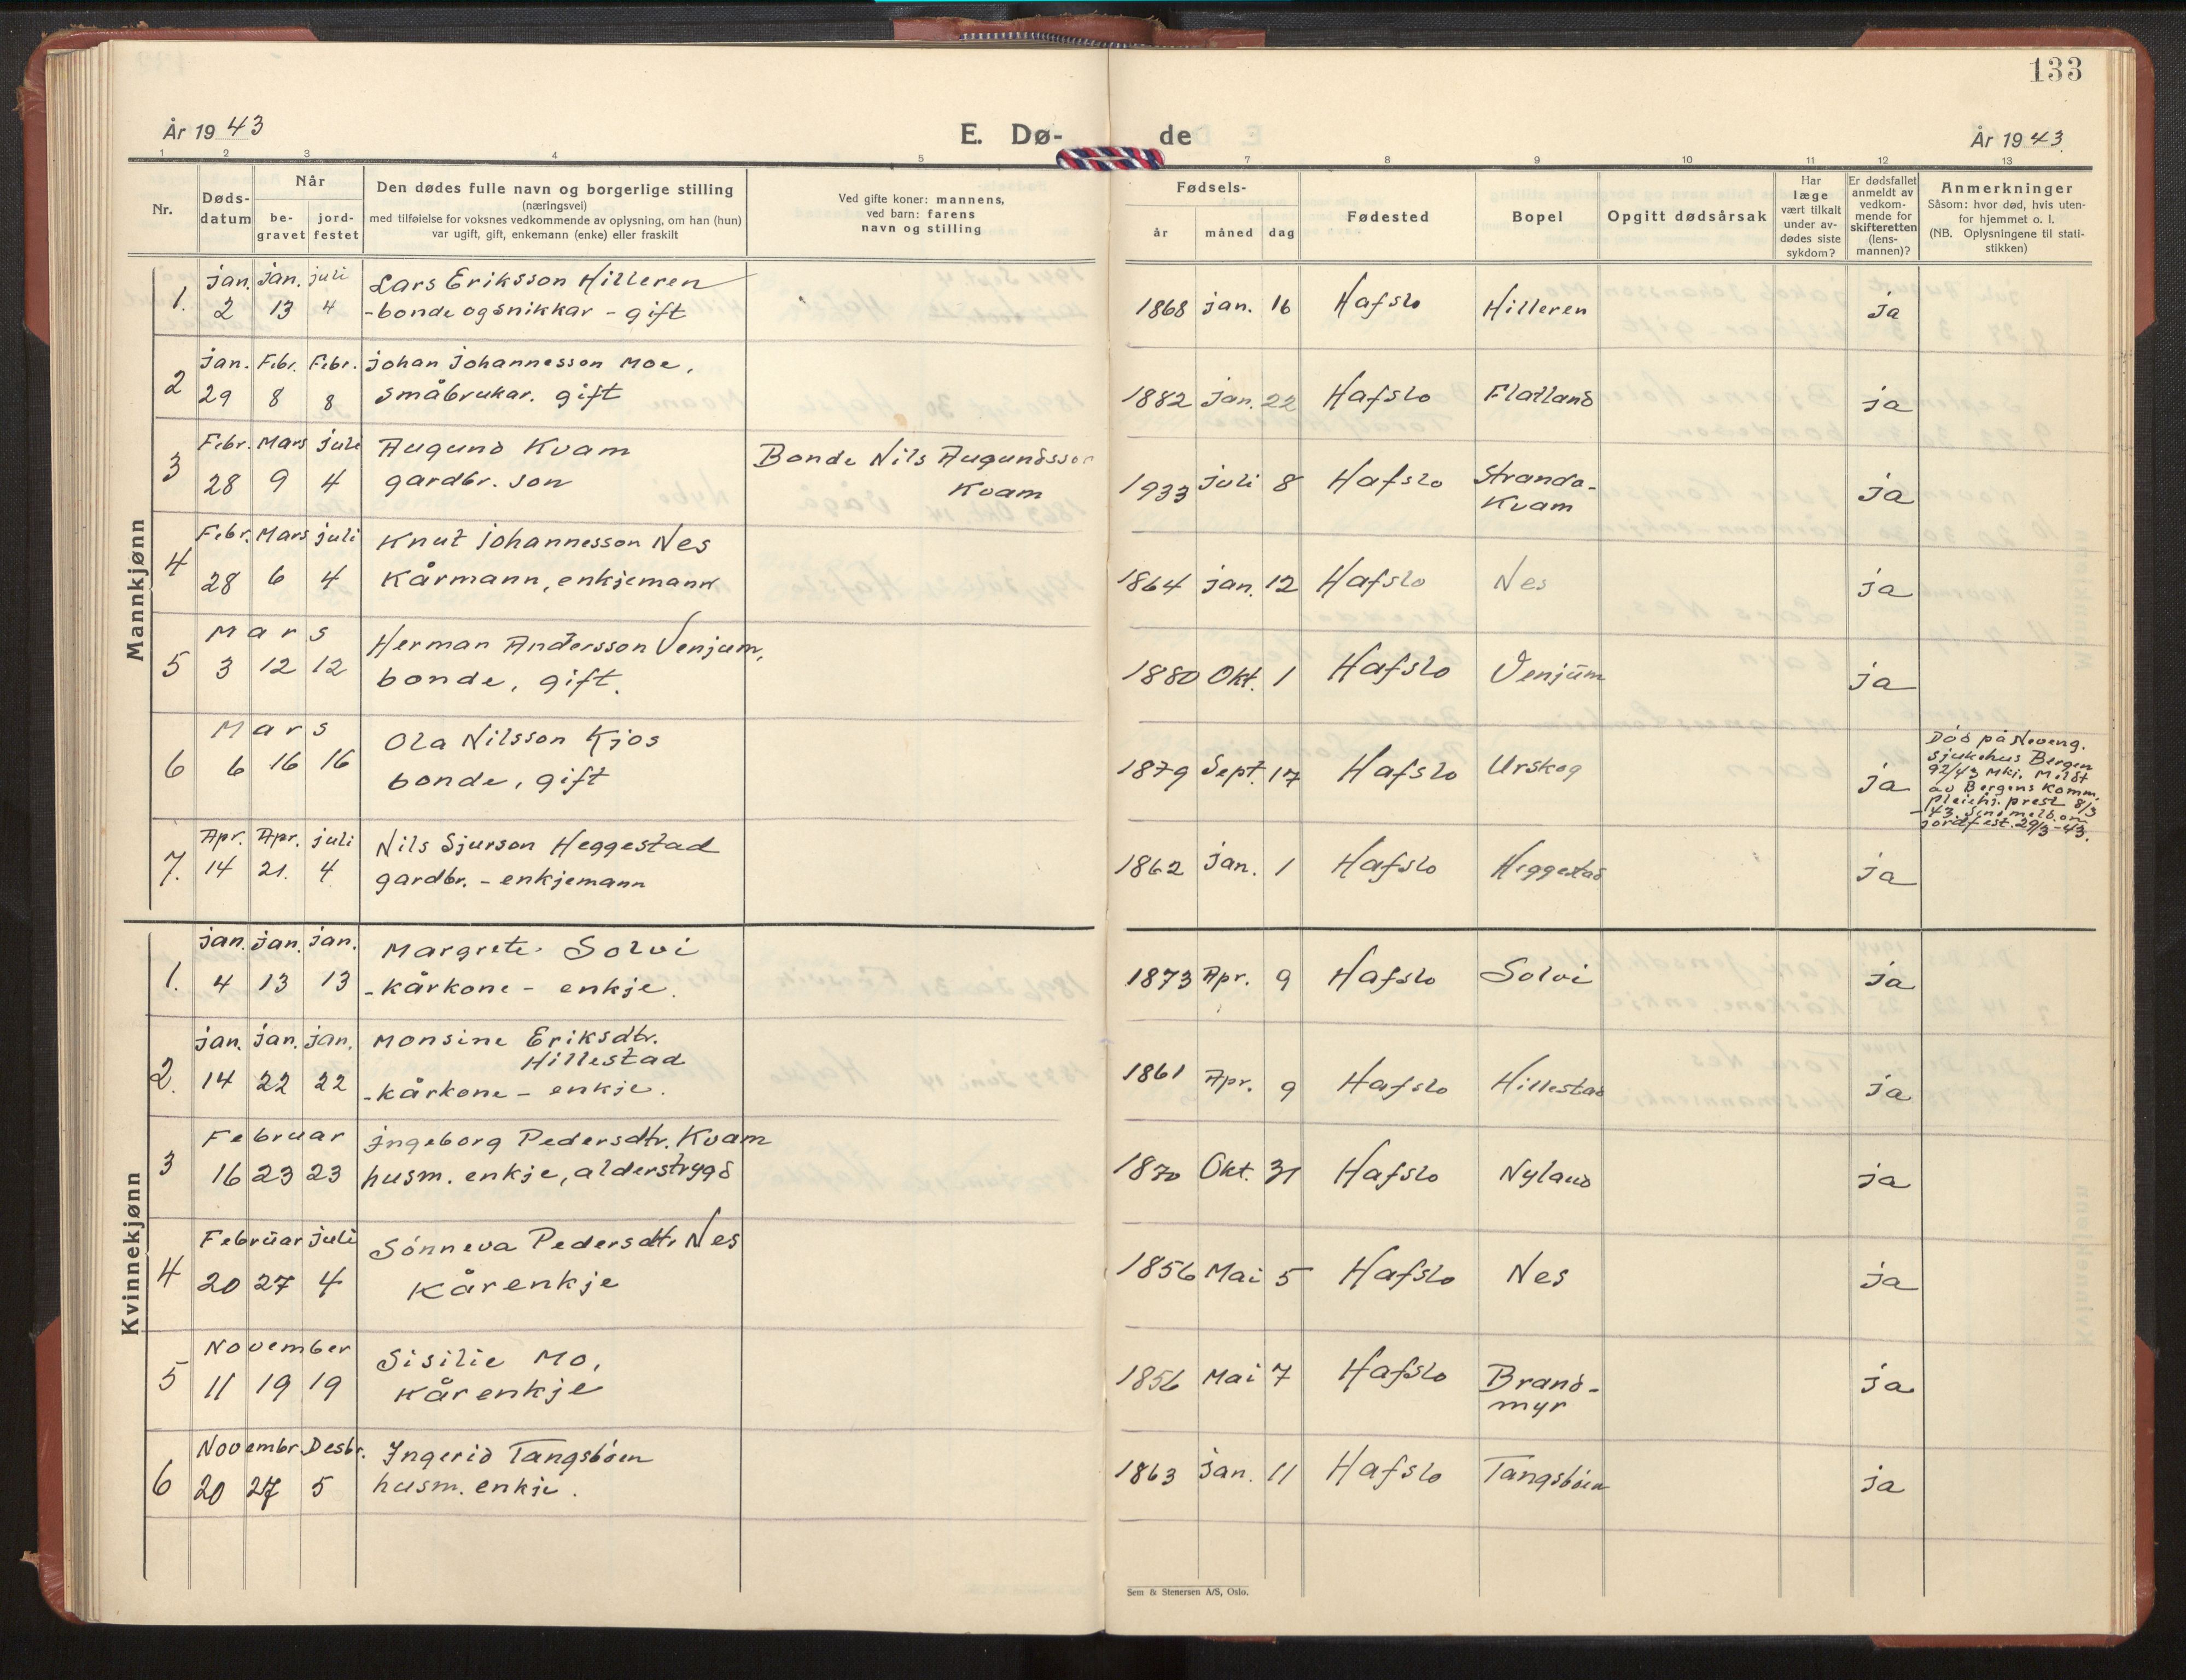 133
År 1943
E. Dø-
de
År 1943.
1 2 3 4 5 7 8 9 10 11 12 13
Nr.
Døds-
datum
Når
be-
gravet
jord-
festet
Den dødes fulle navn og borgerlige stilling
(næringsvei)
med tilføielse for voksnes vedkommende av oplysning, om han (hun)
var ugift, gift, enkemann (enke) eller fraskilt
Ved gifte koner: mannens,
ved barn: farens
navn og stilling
Fødsels-
år måned dag
Fødested
Bopel
Opgitt dødsårsak
Har
læge
vært tilkalt
under av-
dødes siste
sykdom?
Er dødsfallet
anmeldt av
vedkom-
mende for
skifteretten
(lens-
mannen)?
Anmerkninger
Såsom: hvor død, hvis uten-
for hjemmet o. l.
(NB. Oplysningene til stati-
stikken)
Mannkjønn
jan. jan. juli Lars Eriksson Hilleren
1. 2 13 4 -bonde og snikkar - gift 1868 jan. 16 Hafslo Hilleren ja
jan. Febr. Febr. Johan Johannesson Moe,
2 29 8 8 småbrukar. gift 1882 jan. 22 Hafslo Flatland ja
Febr. Mars juli Augund Kvam Bonde Nils Augundsson
3 28 9 4 gardbr. son Kvam 1933 juli 8 Hafslo Stranda-
Kvam ja
Febr. Mars juli Knut Johannesson Nes
4 28 6 4 Kårmann, enkjemann 1864 jan. 12 Hafslo Nes ja
Mars Herman Andersson Venjum,
5 3 12 12 bonde, gift. 1880 Okt. 1 Hafslo Venjum ja
Mars Ola Nilsson Kjos
6 6 16 16 bonde, gift 1879 Sept. 17 Hafslo Urskog ja
Död på Haveng.
Sjukehus Bergen
92/43 Mkj. Meldt
av Bergens Komm.
pleiehj. prest 8/3
-43. Send meld. om
jordfest. 29/3-43.
Apr. Apr. juli Nils Sjurson Heggestad
7. 14 21. 4 gardbr. - enkjemann 1862 jan. 1 Hafslo Heggestad ja
Kvinnekjønn
jan. jan. jan. Margrete Solvi
1. 4 13 13 -kårkone - enkje. 1873 Apr. 9 Hafslo Solvi ja
jan. jan. jan. Monsine Eriksdtr.
Hillestad
2. 14 22 22 -kårkone - enkje. 1861 Apr. 9 Hafslo Hillestad ja
Februar Ingeborg Pedersdtr. Kvam
3 16 23 23 husm. enkje, alderstrygd 1870 Okt. 31 Hafslo Nyland ja
Februar juli Sönneva Pedersdtr Nes
4 20 27 4 Kårenkje 1856 Mai 5 Hafslo Nes ja
November Sisilie Mo,
5 11 19 19 Kårenkje 1856 Mai 7 Hafslo Brand-
myr ja
Novembr. Desbr. Ingerid Tangsböen
6 20 27 5 husm. enkje. 1863 jan. 11 Hafslo Tangsböen ja
Sem & Stenersen A/S, Oslo.